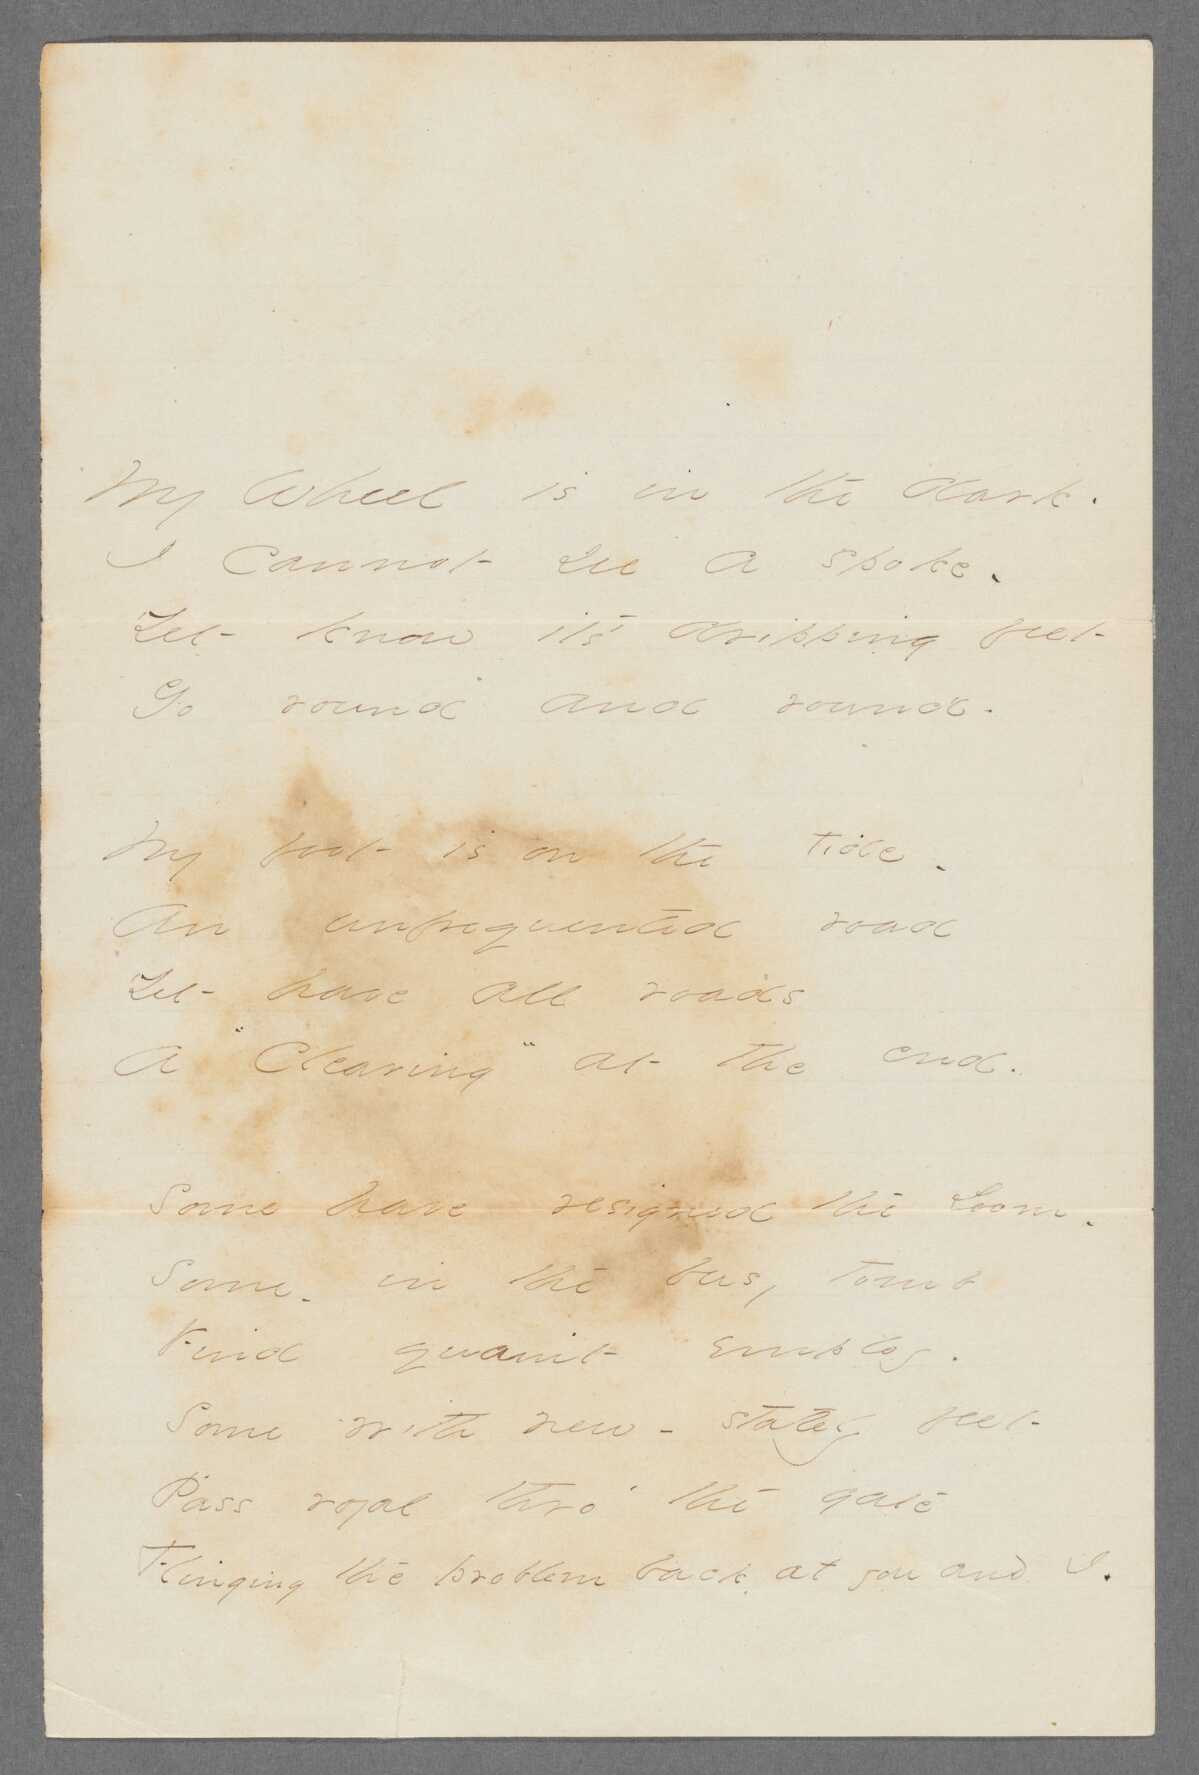 My Wheel is in the dark.
I cannot see a spoke.
Yet know it's dripping feet
Go round and round.
My foot is on the Tide.
An unfrequented road
Yet have all roads
A "Clearing" at the end.
Some have resigned the Loom.
Some - in the busy tomb
Find quaint employ.
Some with new - stately feet
Pass royal thro' the gate
Flinging the problem back at you and I.